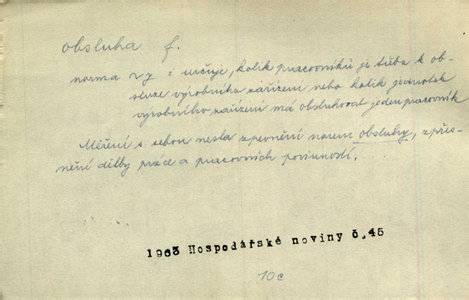 obsluha f.
norma : určuje, kolik pracovníků je třeba k ob-
sluze výrobního zařízení nebo kolik jednotek
výrobního zařízení má obsluhovat jeden pracovník
Měření s sebou nesla zpevnění norem obsluhy, zpřes-
nění dělby práce a pracovních povinností.
1963 Hospodářské noviny č.45
10c